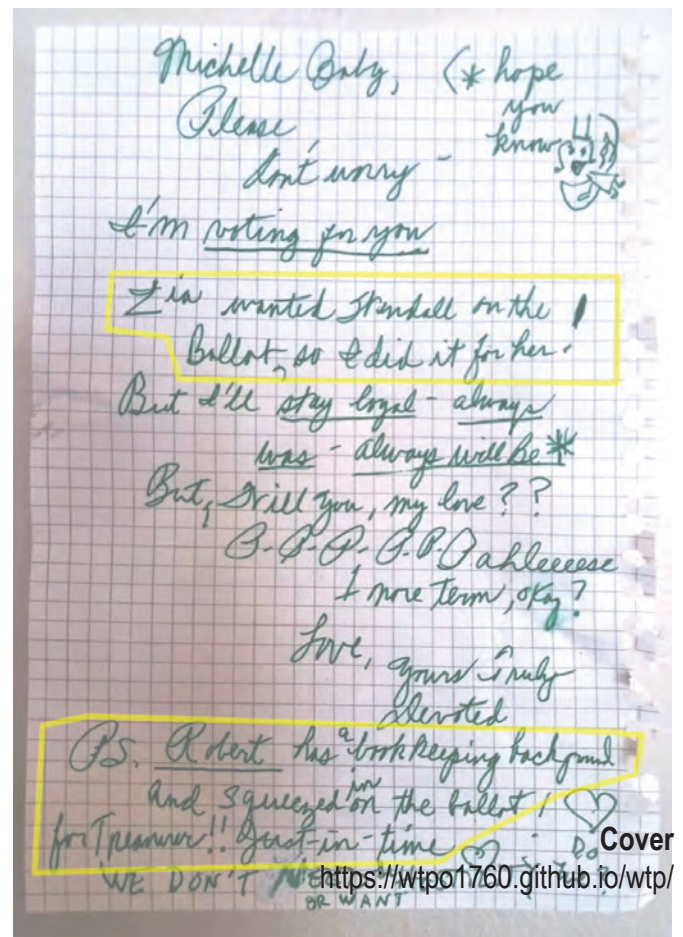 Michelle Baby, (* hope
you
know !!)
Please,
don't worry -
I'm voting for you
Zia wanted Kendall on the !
Ballot, so I did it for her.
But I'll stay loyal - always
was - always will be *
But, Will you, my love ? ?
P-P-P-P.P.Pahleeeese
1 more term, okay?
Love, yours Truly
Devoted
PS. Robert has a bookkeeping background
and squeezed in on the ballot !
for Treasurer!! Just-in-time
WE DON'T
OR WANT
Cover
https://wtpo1760.github.io/wtp/